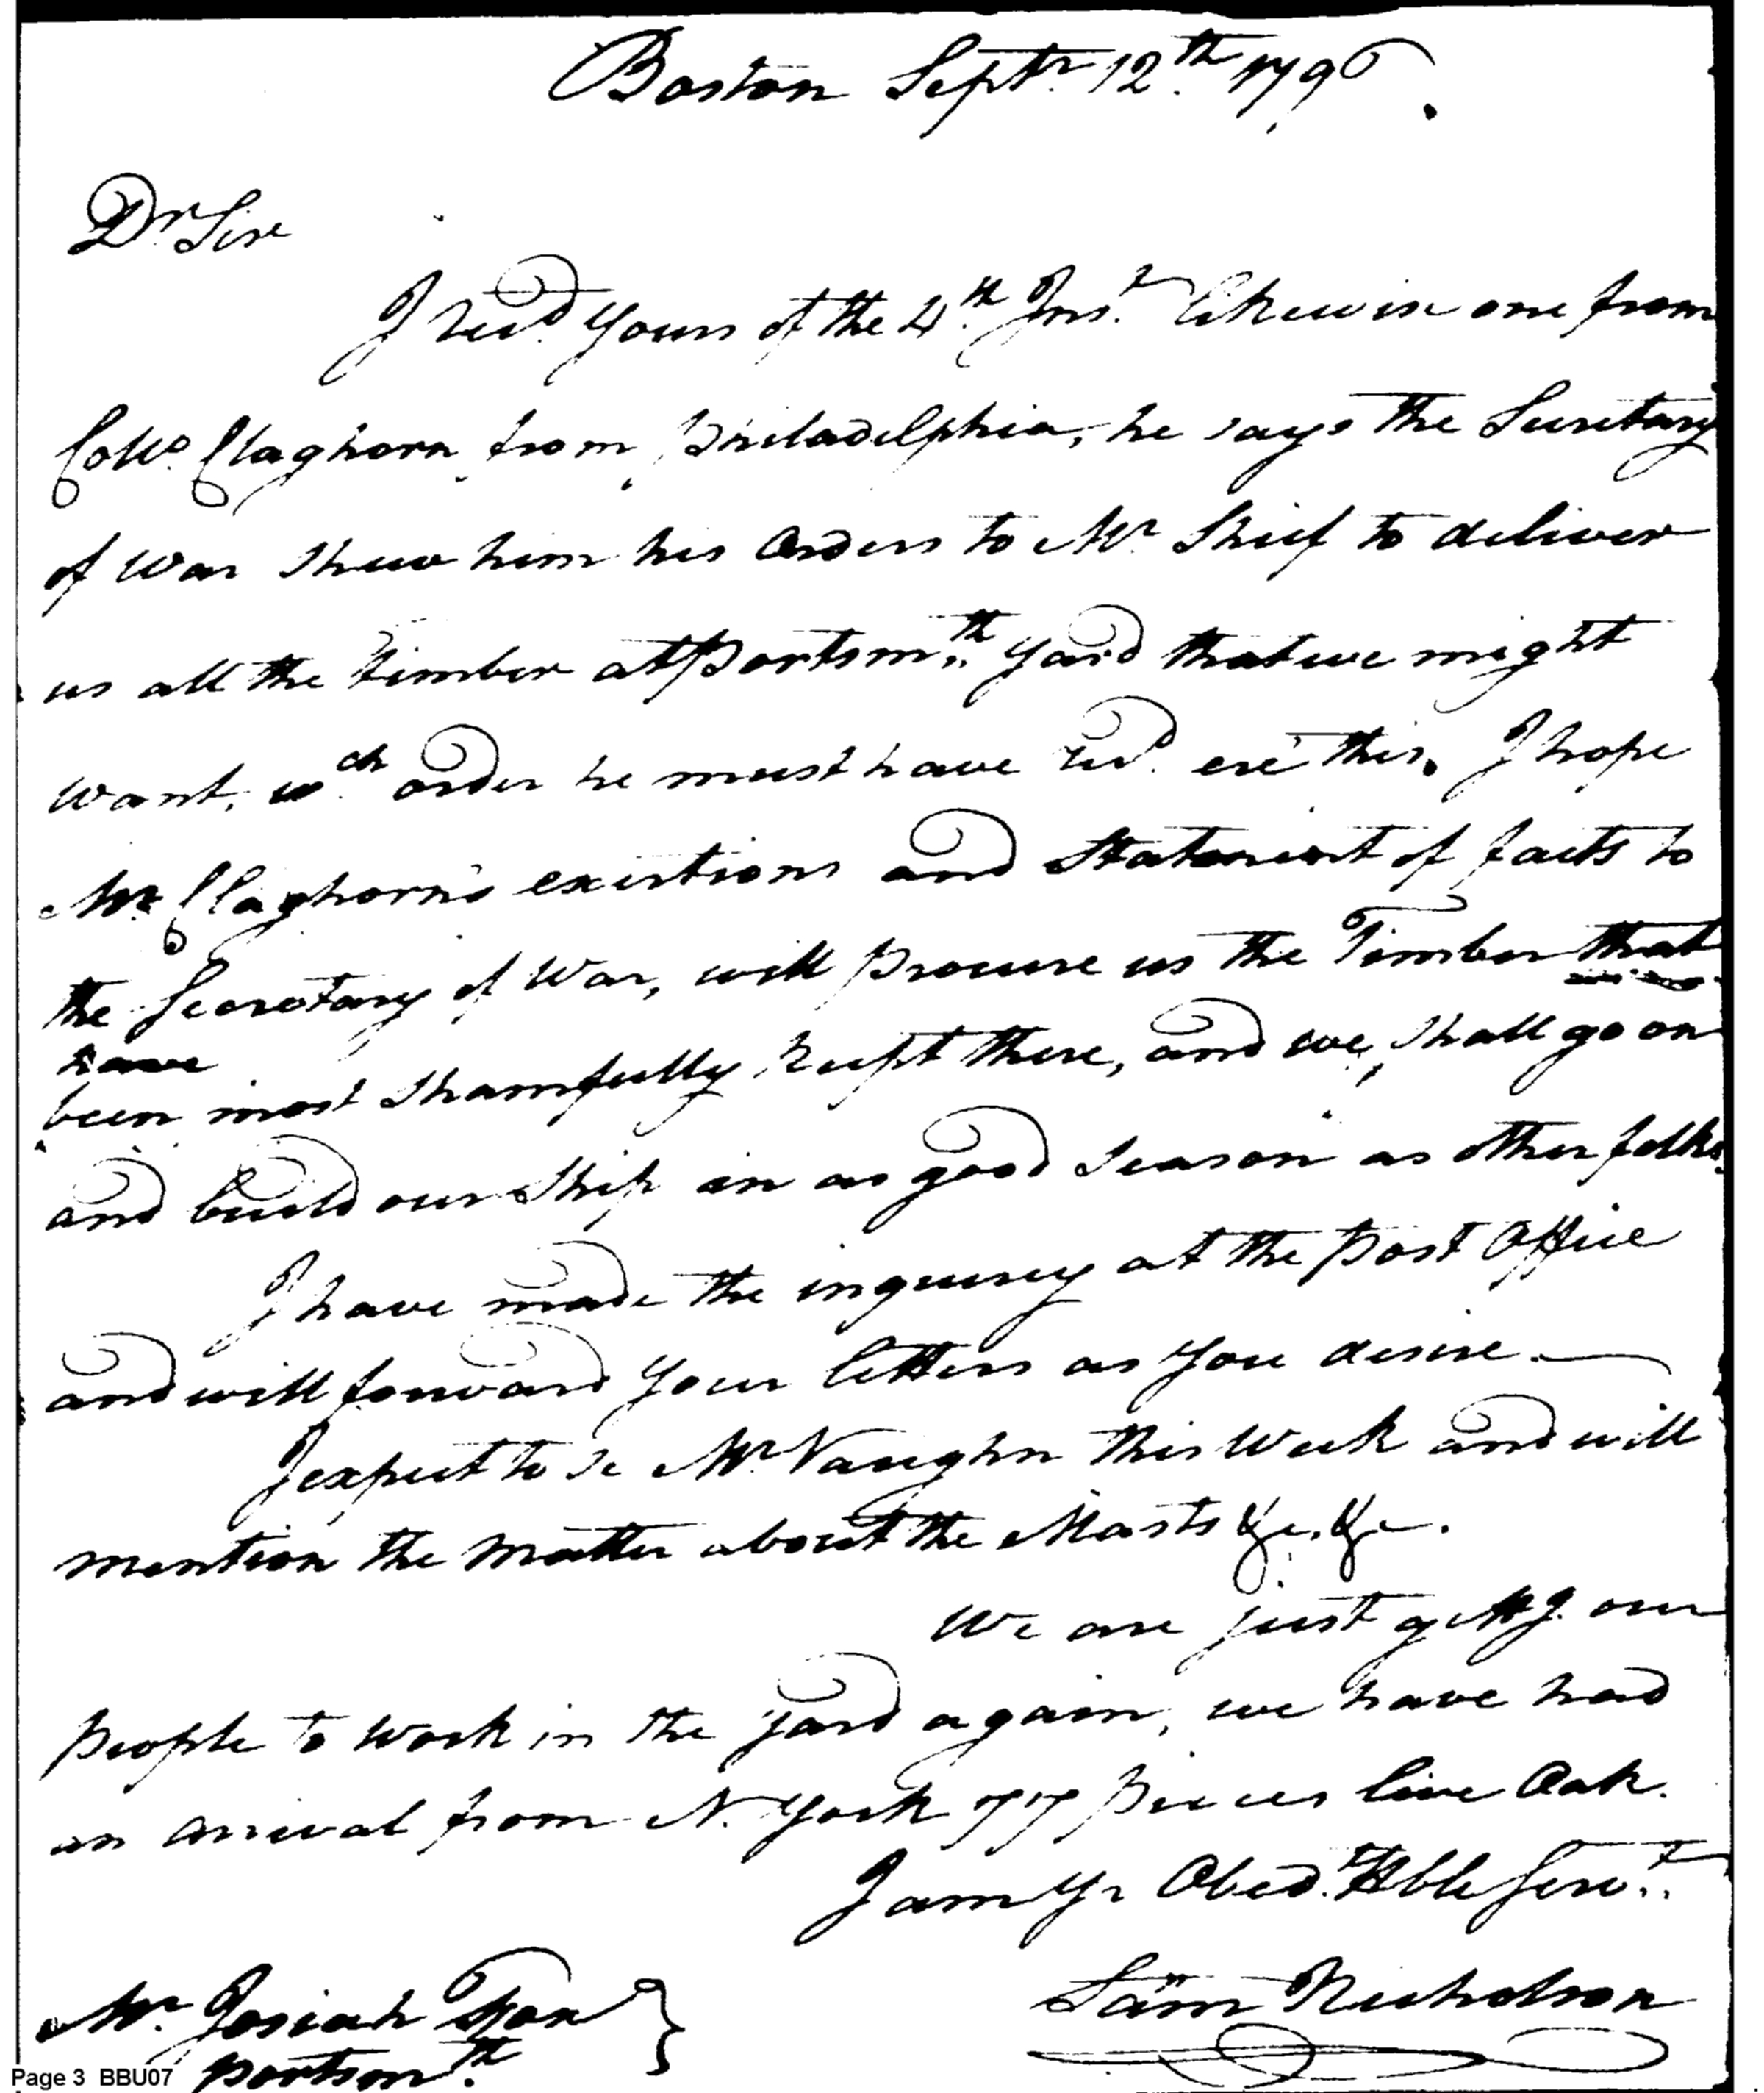 Boston Sept.r 12.th 1796.
Dr Sir
I recd. yours of the 4.th Ins.t likewise one from
Collo. Claghorn from Philadelphia, he says the Secretary
of War shew him his Orders to Mr Shief to deliver
us all the timber at Portsm.th Yard that we might
want, wch order he must have recd. ere this. I hope
Mr Claghorn's exertions and Statement of facts to
the Secretary of War, will procure us the Timber that
have
been most shamfully kept there, and we, shall go on
and build our Ship in as good Season as other folks.
I have made the inquirey at the Post Office
and will forward your letters as you desire.—
I expect to se Mr Vaughn this Week and will
mention the Matter about the Masts &c. &c.
We are just gettg. our
people to work in the yard again, we have had
an arrival from N. York 77 pieces live Oak.
I am Yr Obed.t Hble Serv.t
Sam Nicholson
Mr. Josiah Fox }
Portsm.th
Page 3 BBU07